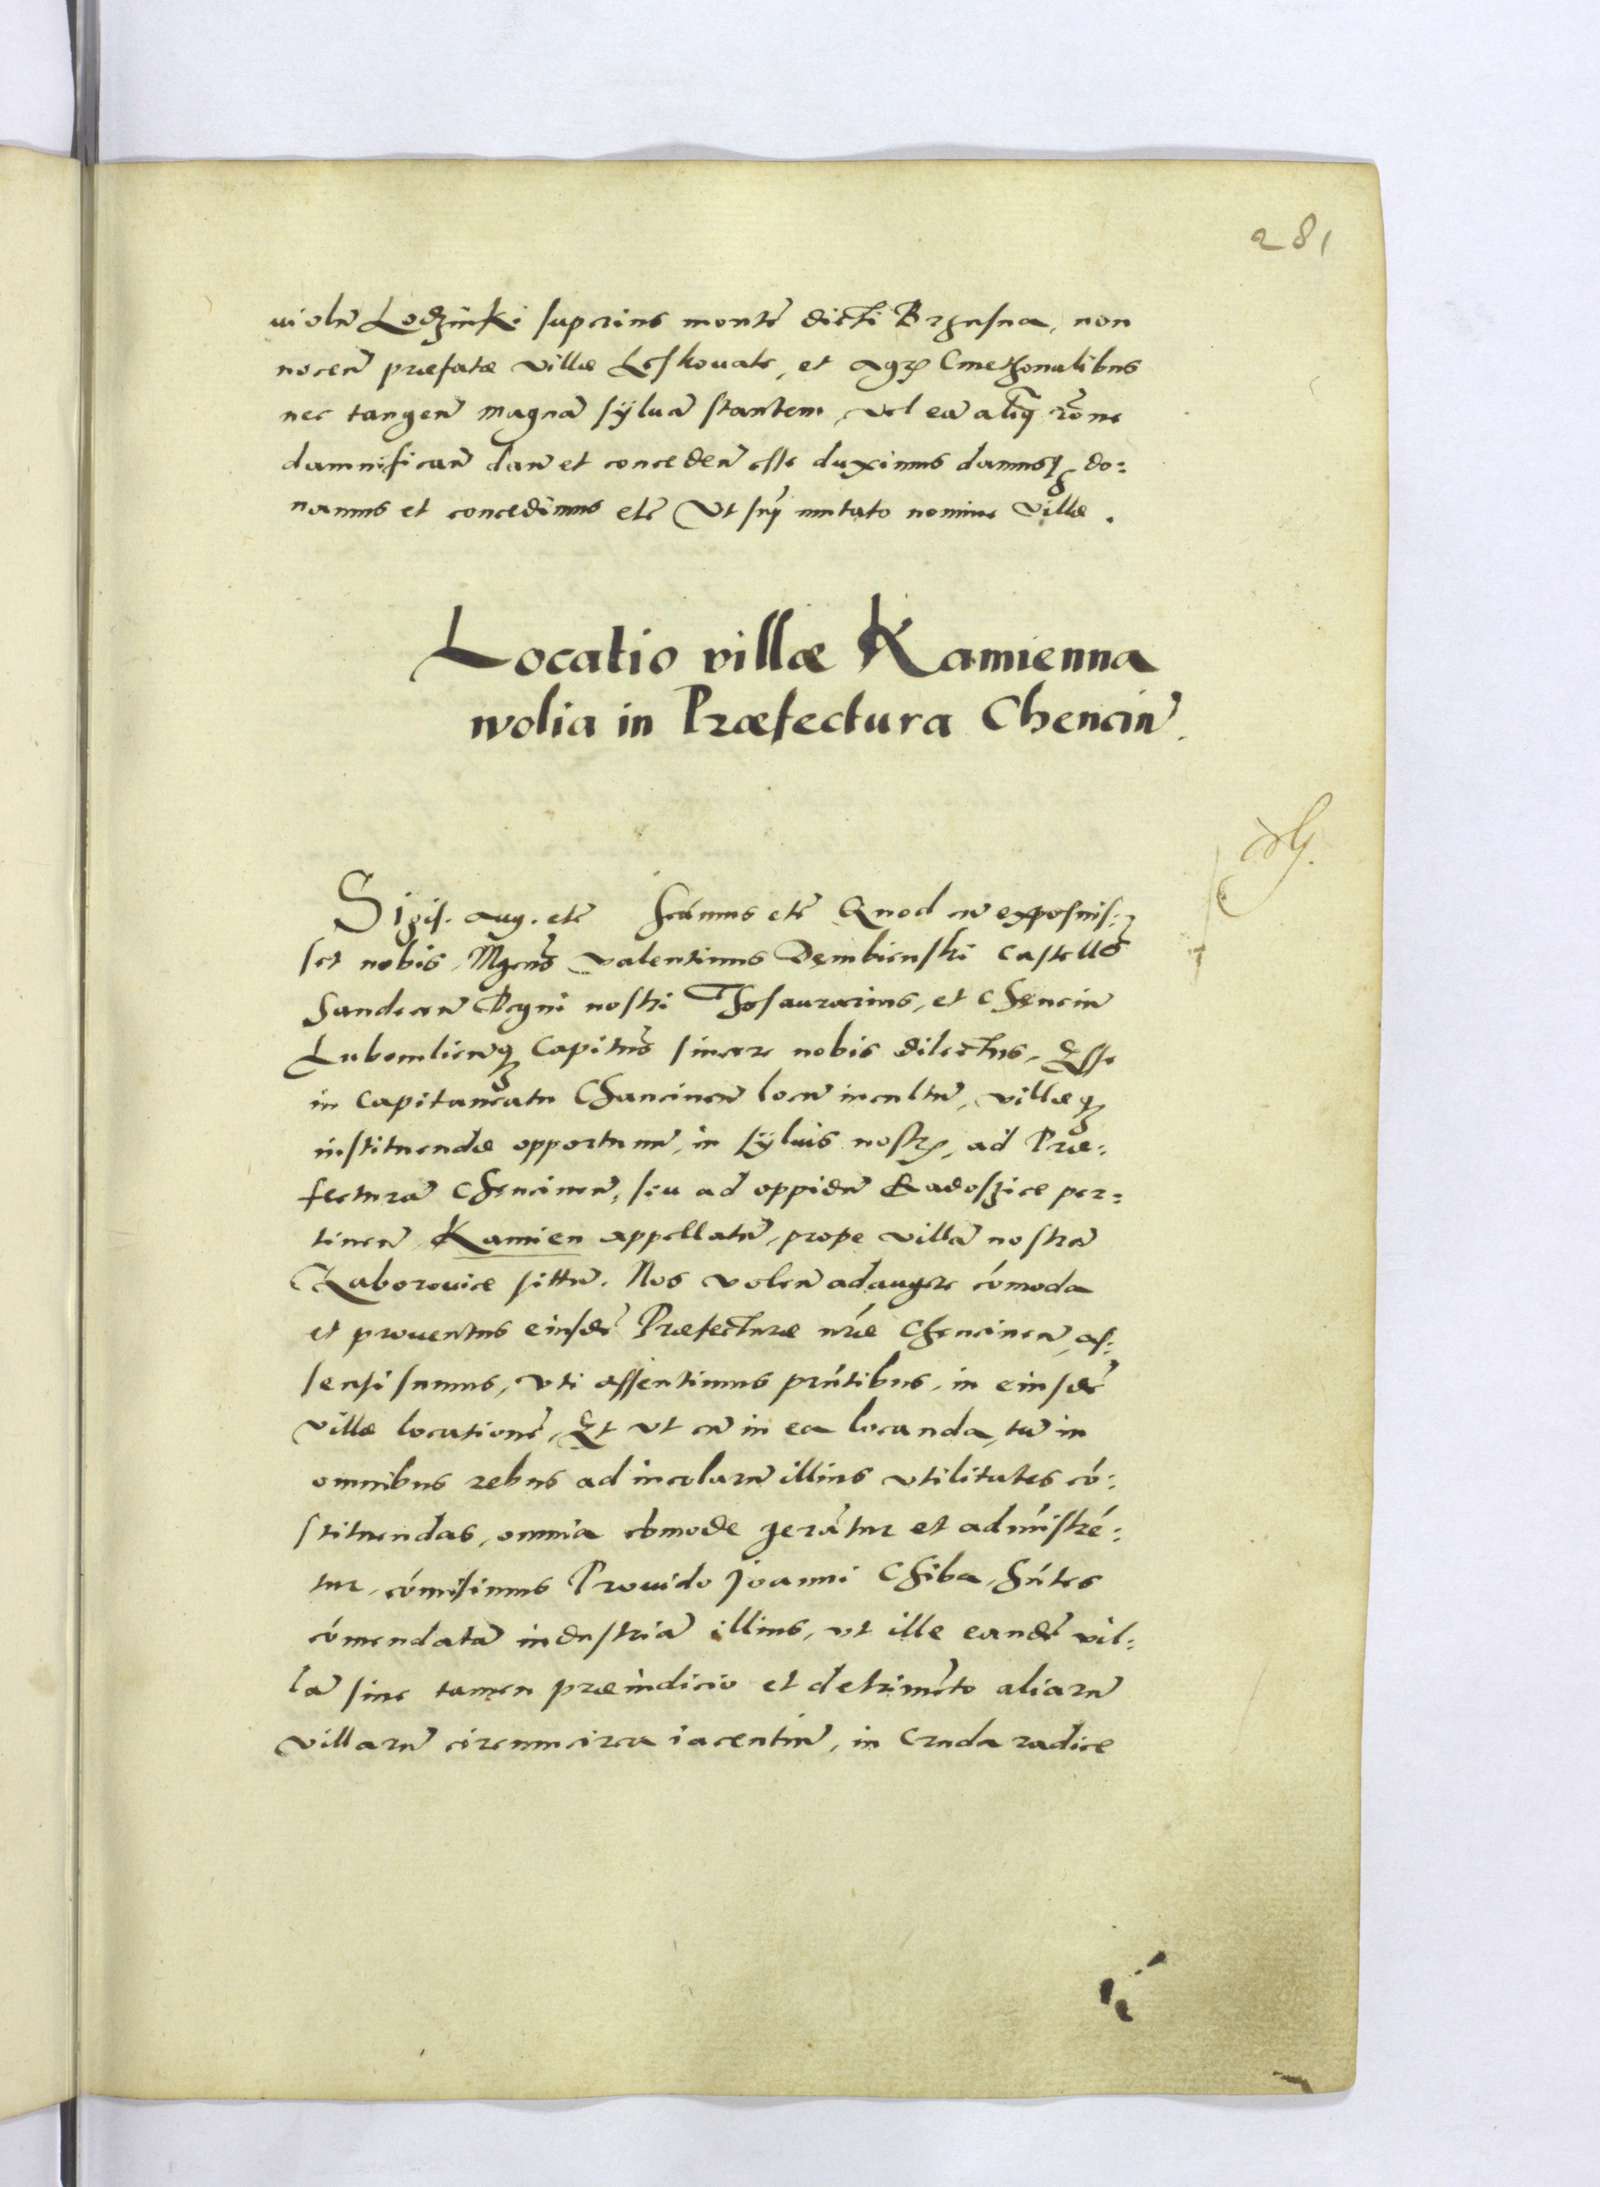 281
violn̄ Lodzinki superius montē dicti Brzusna, non
nocen̄ præfatæ villæ Leskouate, et agrꝭ Cmethonalibus
nec tangen̄ magnā syluā stantem, vel eā aliq̄ rōne
damnifican̄ dan̄ et conceden̄ esse duximus damusqꝫ do:
namus et concedimus etc̄ Vt sup̄ mutato nomine villæ.
Locatio villæ Kamienna
wolia in Præfectura Chencin̄.
Sigis. Aug. etc̄ Scām̄us etc̄ Quod cū exposuis:
set nobis Mgcus̄ Valentinus Dembienski Castellōs
Sandecen̄ Regni nostri Thesaurarius, et Chencin̄
Lubomlien̄qꝫ Capitn̄s sincere nobis dilectus, Esse
in Capitaneatu Chancinen̄ locū incultū, villæqꝫ
instituendæ opportunū, in syluis nostrꝭ, ad Præ:
fecturā Chencinen̄, seu ad oppidū Radoszice per:
tinen̄ Kamien appellatū, prope villā nostrā
Zaborouice sittū. Nos volen̄ adaugere cōmoda
et prouentus eiusdē Præfecturæ nr̄æ Chencinen̄, as:
sensi sumus, vti assentimus pn̄tibus, in eiusdē
villæ locationē, Et vt cū in ea locanda, tū in
omnibus rebus ad incolarū illius vtilitates cō:
stituendas, omnia cōmode gerātur et admīstrē:
tur, cōmisimus Prouido Joanni Chiba, hn̄tes
cōmendatā industriā illius, vt ille eandē vil:
lā sine tamen præiudicio et detrimēto aliarū
villarū circumcirca iacentiū, in cruda radice